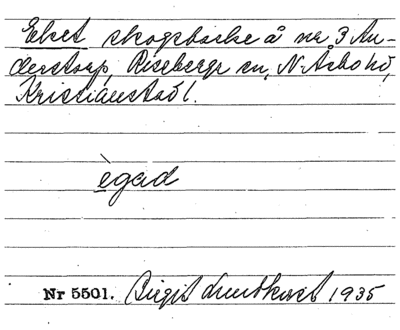 Eket skogsbacke å nr 3 An-
derstorp, Riseberga sn, N. Åsbo hd,
Kristianstad l.
ègad
Nr 5501. Birgit Lundkvist 1935